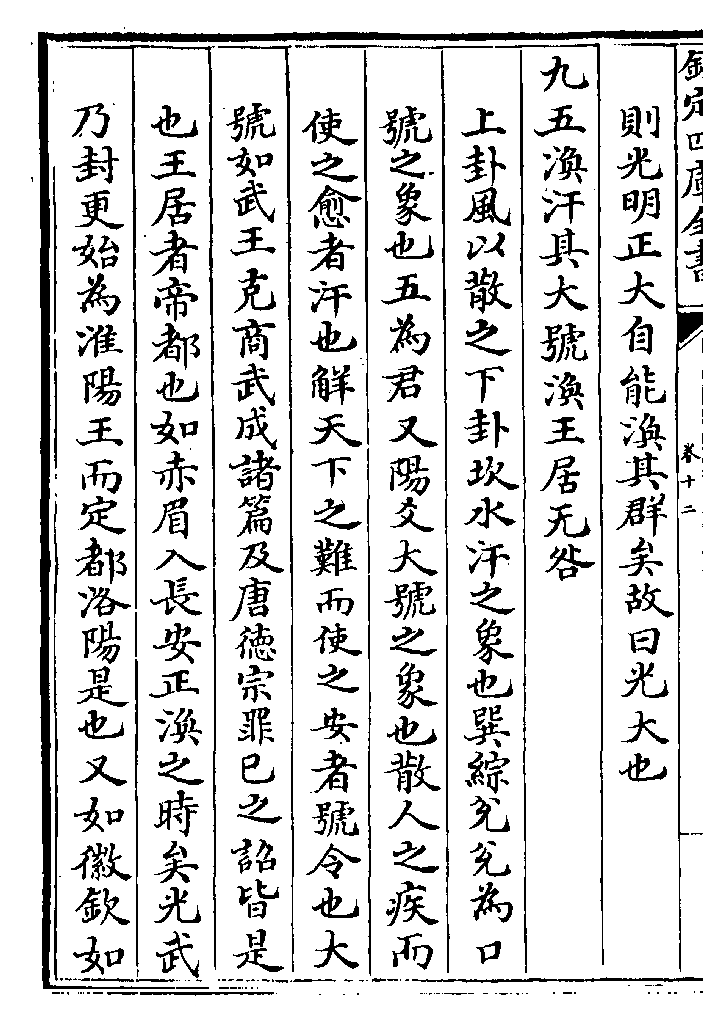 欽定四庫全書
卷十二
則光明正大自能渙其群矣故曰光大也
九五渙汗其大號渙王居无咎
上卦風以散之下卦坎水汗之象也巽綜兌兌為口
號之象也五為君又陽爻大號之象也散人之疾而
使之愈者汗也解天下之難而使之安者號令也大
號如武王克商武成諸篇及唐德宗罪已之詔皆是
也王居者帝都也如赤眉入長安正渙之時矣光武
乃封更始為淮陽王而定都洛陽是也又如徽欽如